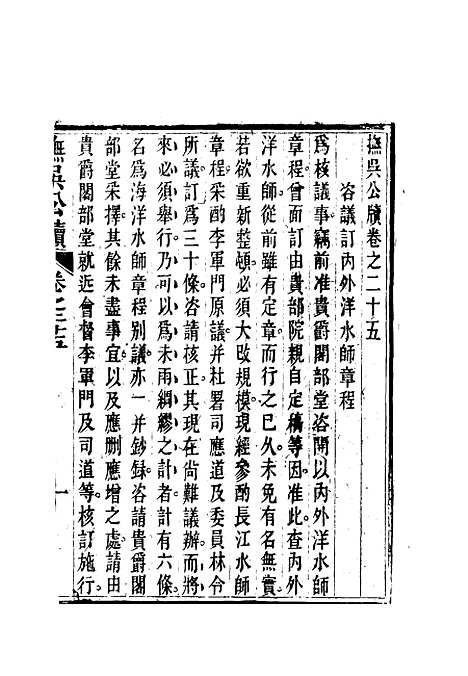 撫吳公牘卷之二十五
咨議訂內外洋水師章程
爲核議事竊前准貴爵閣部堂咨開以內外洋水師
章程曾面訂由貴部院親自定稿等因准此查內外
洋水師從前雖有定章而行之已久未免有名無實
若欲重新整頓必須大改規模現經參酌長江水師
章程采酌李軍門原議并杜署司應道及委員林令
所議訂爲三十條咨請核正其現在尚難議辦而將
來必須舉行乃可以爲未雨綢繆之計者計有六條
名爲海洋水師章程別議亦一并鈔錄咨請貴爵閣
部堂采擇其餘未盡事宜以及應刪應增之處請由
貴爵閣部堂就近會督李軍門及司道等核訂施行
撫吳公牘 卷之二十五 一